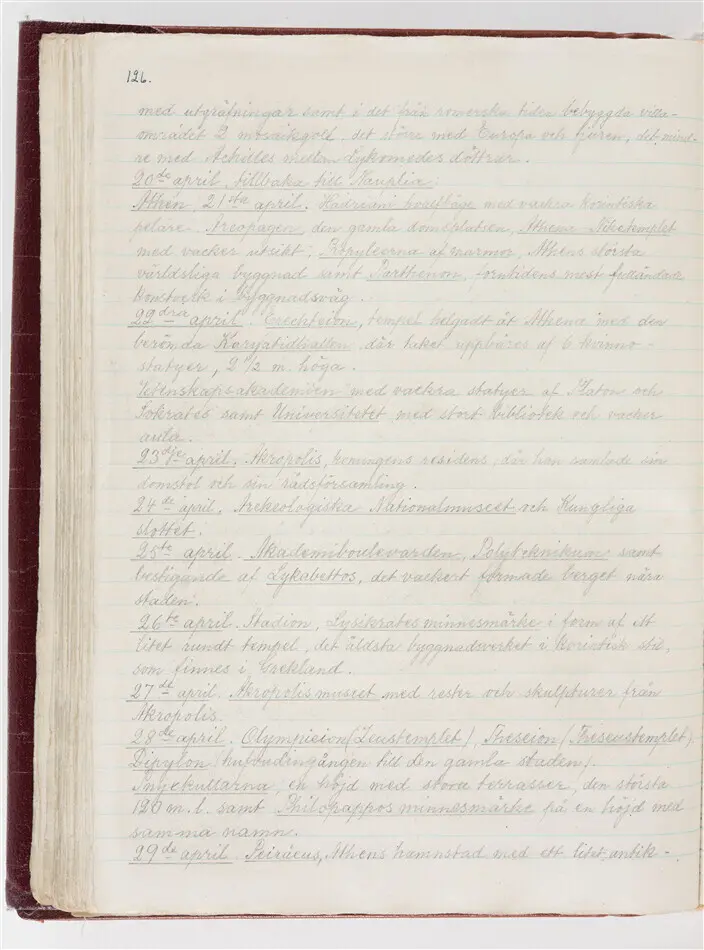 126.
med utgräfningar samt i det från romerska tiden bebyggda villa-
området 2 mosaikgolf, det större med Europa och tjuren, det mind-
re med Achilles mellan Lykomedes döttrar.
20de april. tillbaka till Nauplia.
Athén, 21sta april. Hadriani borgbåge med vackra korintiska
pelare. Areopagen, den gamla domplatsen, Athena Niketemplet
med vacker utsikt, Propyleerna af marmor, Athens största
världsliga byggnad samt Parthenon, forntidens mest fulländade
konstverk i byggnadsväg.
22dra april. Erechteion, tempel helgadt åt Athena med den
berömda Karyatidhallen där taket uppbäres af 6 kvinno-
statyer, 2 1/2 m. höga.
Vetenskapsakademien med vackra statyer af Platon och
Sokrates samt Universitetet med stort bibliotek och vacker
aula.
23dje april. Akropolis, konungens residens, där han samlade sin
domstol och sin rådsförsamling.
24de april. Arkeologiska Nationalmuseet och Kungliga
slottet.
25te april. Akademiboulevarden, Polyteknikum samt
bestigande af Lykabettos, det vackert formade berget nära
staden.
26te april. Stadion, Lysikrates minnesmärke i form af ett
litet rundt tempel, det äldsta byggnadsverket i korintisk stil,
som finnes i Grekland.
27de april. Akropolismuseet med rester och skulpturer från
Akropolis.
28de april. Olympieion (Zeustemplet), Theseion (Theseustemplet),
Dipylon (hufvudingången till den gamla staden).
Pnyxkullarna, en höjd med stora terrasser, den största
120 m. l. samt Philopappos minnesmärke på en höjd med
samma namn.
29de april. Peiræeus, Athens hamnstad med ett litet antik-